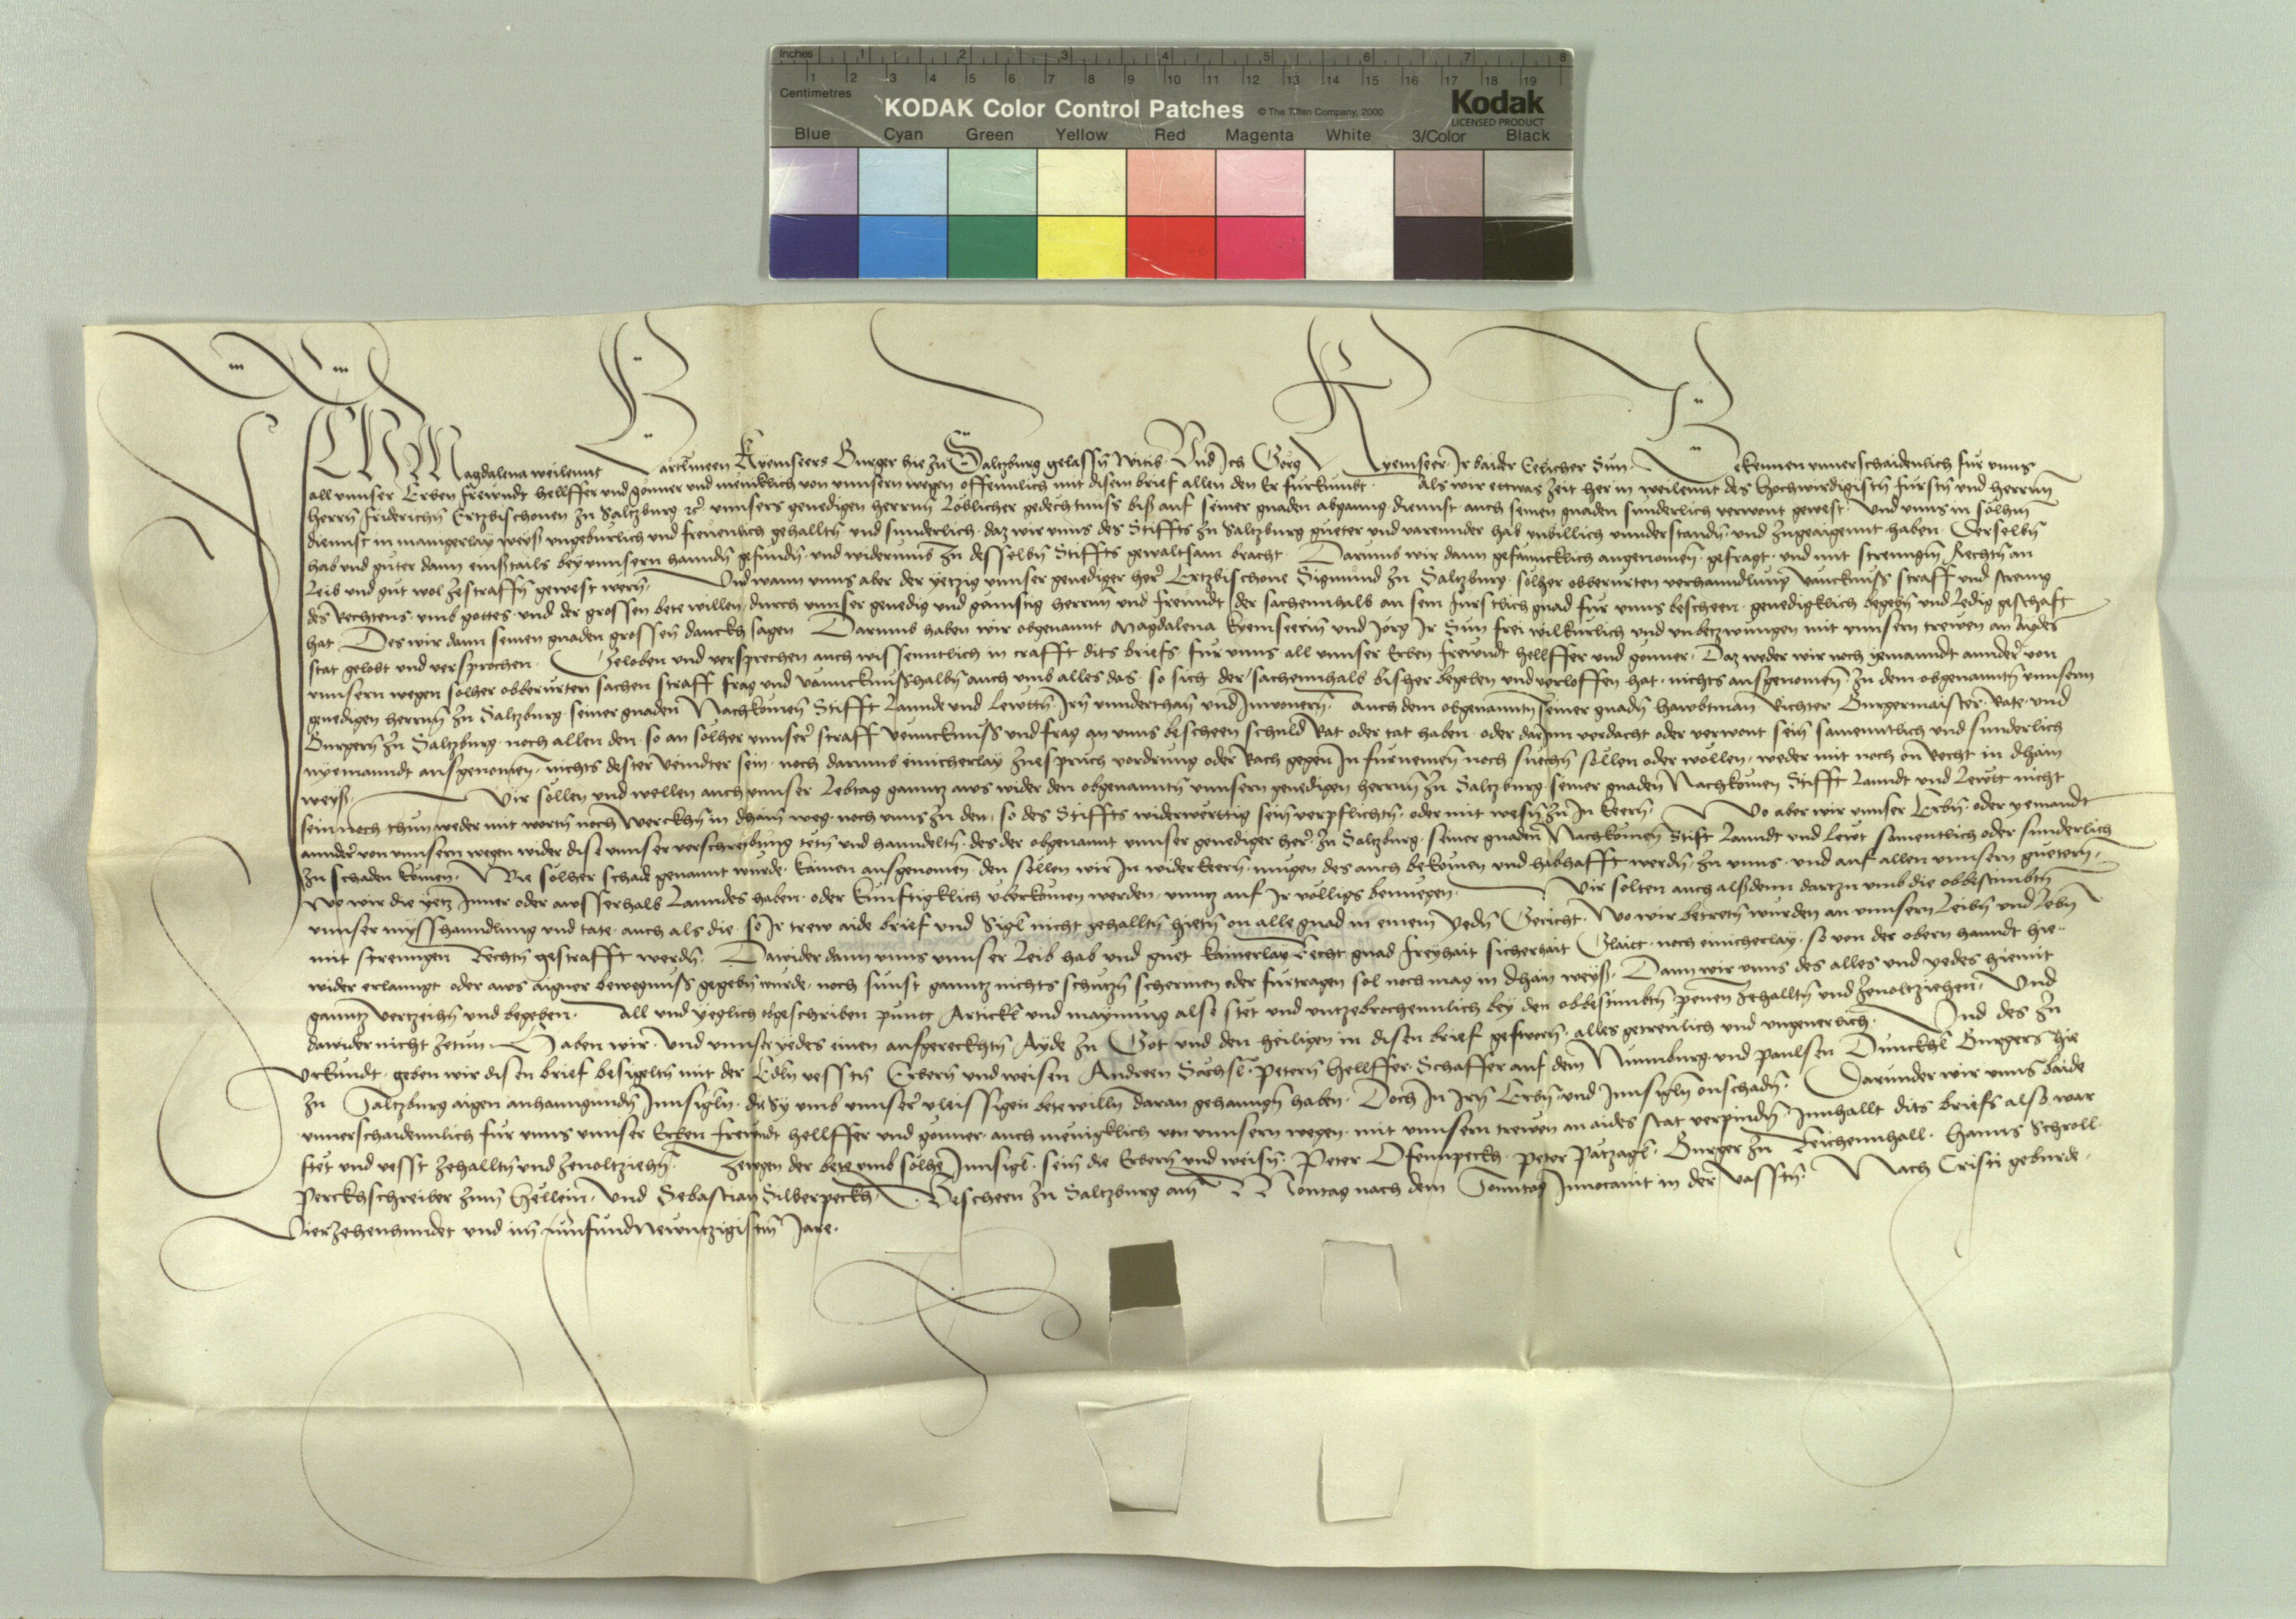 Inches 1 2 3 4 5 6 7 8
1 2 3 4 5 6 7 8 9 10 11 12 13 14 15 16 17 18 19
Centimetres
KODAK Color Control Patches © The Tiffen Company, 2000 Kodak
LICENSED PRODUCT
Blue Cyan Green Yellow Red Magenta White 3/Color Black
Ich Magdalena weilennt Bartlmeen Kyemseers Burger hie zu Saltzburg gelassn witib Und Ich Georg Kyemseer Ir baider Eelicher Sun Bekennen unverschaidenlich fur unns
all unnser Erben freundt hellffer und gonner und meniklich von unnsern wegen offennlich mit disem brief allen den Er furkumbt Als wir ettwas zeit her in weilennt des Hochwirdigistn fursten und herrnn
herrn Friderichn Ertzbischoven zu Saltzburg etc unnsers genedigen herrnn Loblicher gedechtnuss biss auf seiner gnaden abganng diennst auch seinen gnaden sunderlich verwont gewest Und unns in solhm
diennst in manigerlay weyss ungeburlich und frevenlich gehalltn und sunderlich daz wir unns des Stiffts zu Saltzburg gueter und varennder hab unbillich unnderstandn und zugeaigennt haben Derselbn
hab und guter dann ainstails bey unnsern hanndn gefundn und widerumb zu desselbn Stiffts gewaltsam bracht Darumb wir dann gefannckhlich angenomen gefragt und mit strenngm Rechtn an
Leib und gut wol zestraffn gewest wern Und wann unns aber der yetzig unnser genediger her Ertzbischove Sigmund zu Saltzburg solher obberurten verhanndlung vanncknuss straff und strenng
des Rechtens umb gottes und der grossen bete willen durch unnser genedig und gunstig herrnn und freundt der sachennhalb an sein furstlich gnad fur unns bescheen genedigklich begebn und ledig geschafft
hat Des wir dann seinen gnaden grossen danckh sagen Darumb haben wir obgenannt Magdalena Kyemseerin und Jorg Ir Sun frei wilkurlich und unbetzwungen mit unnsern trewen an Aydes
stat gelobt und versprochen Geloben und versprechen auch wissenntlich in crafft dits briefs fur unns all unnser Erben freundt hellffer und gonner Daz weder wir noch yemanndt annder von
unnsern wegen solher obberurten sachen straff frag und vanncknusshalbn auch umb alles das so sich der sachennhalb bisher begeben und verloffen hat nichts ausgenomen zu dem obgenanntn unnserm
genedigen herrnn zu Saltzburg seiner gnaden Nachkomen Stifft Lannde und Lewttn Irn unnderthan und Inwonern Auch dem obgenanntn seiner gnadn hawbtman Richter Burgermaister Rate und
Burgern zu Saltzburg noch allen den so an solher unnser straff vanncknuss und frag an unns bescheen schuld Rat oder tat haben oder darinn verdacht oder verwont sein samenntlich und sunderlich
nyemanndt ausgenomen nichts dester veindter sein noch darumb ainicherlay zuespruch vordrung oder Rach gegen In furnemen noch suechn sullen oder wollen weder mit noch on Recht in dhain
weyss Wir sollen und wellen auch unnser Lebtag ganntz aws wider den obgenanntn unnsern genedigen herrnn zu Saltzburg seiner gnaden Nachkomen Stifft Lanndt und Lewtt nicht
sein noch thun weder mit wortn noch werckhn in dhain weg noch unns zu den so des Stiffts widerwerttig sein verpflichtn oder mit wesn zu In keern Wo aber wir unnser Erbn oder yemandt
annder von unnsern wegen wider dise unnser verschreibung tetn und hanndeltn des der obgenannt unnser genediger her zu Saltzburg seiner gnaden Nachkomen Stift Lanndt und Lewt samentlich oder sunderlich
zu schaden komen Wie solher schad genannt wurde kainen ausgenomen den sullen wir In widerkeern mugen des auch bekomen und habhafft werdn zu unns und auf allen unnsern guetern
Wo wir die yetz Inner oder awsserhalb Lanndes haben oder kunftigklich uberkomen werden unntz auf Ir volligs benuegen Wir solten auch alssdenn dartzu umb die obbestimbtn
unnser mysshanndlung und tate auch als die so Ir trew aide brief und Sigl nicht gehalltn hietn on alle gnad in einem yedn Gericht Wo wir betretn wurden an unnsern Leibn und Lebn
mit strenngem Rechtn gestrafft werdn Dawider dann unns unnser Leib hab und guet kainerlay Recht gnad freyhait sicherhait Glaitt noch ainicherlay so von der obern hanndt hie
wider erlanngt oder aws aigner bewegnuss gegebn wurde noch sunst ganntz nichts schutzn schermen oder furtragen sol noch mag in dhain weyss Dann wir unns des alles und yedes hiemit
ganntz vertzeihn und begeben All und yeglich obgeschriben punct Artickl und maynung also stet und untzebrochennlich bey den obbestimbtn penen zehalltn und zevoltziehen Und
dawider nicht zetun Haben wir und unnser yedes einen ausgereckhtn Ayde zu Got und den heiligen in disen brief gesworn alles getreulich und ungeverlich Und des zu
Urkundt geben wir disen brief besigeltn mit der Edln vesstn Erbern und weisen Andreen Sachsl Petern Hellffer Schaffer auf dem Nunnburg und Paulsen Dunckhl Burgers hie
zu Saltzburg aigen anhanngundn Innsigln die Sy umb unnser vleissigen bete willn daran gehanngn haben Doch In Irn Erbn und Innsigln onschadn Darunder wir unns baide
unverschaidennlich fur unns unnser Erben freundt hellffer und gonner auch menigklich von unnsern wegen mit unnsern trewen an aides stat verpindn Innhallt dits briefs also war
stet und vesst zehalltn und zevoltziehn Zewgen der bete umb solhe Innsigl sein die Erbern und weisn Peter Ofennpeckh Peter Patzagl Burger zu Reichennhall Hanns Schroll
Perckhschreiber zum Hellein und Sebastian Silberpeckh Bescheen zu Saltzburg am Montag nach dem Sonntag Invocavit in der Vasstn Nach Cristi geburde
Vierzehenhundet und im funfundNewntzigistm Jare